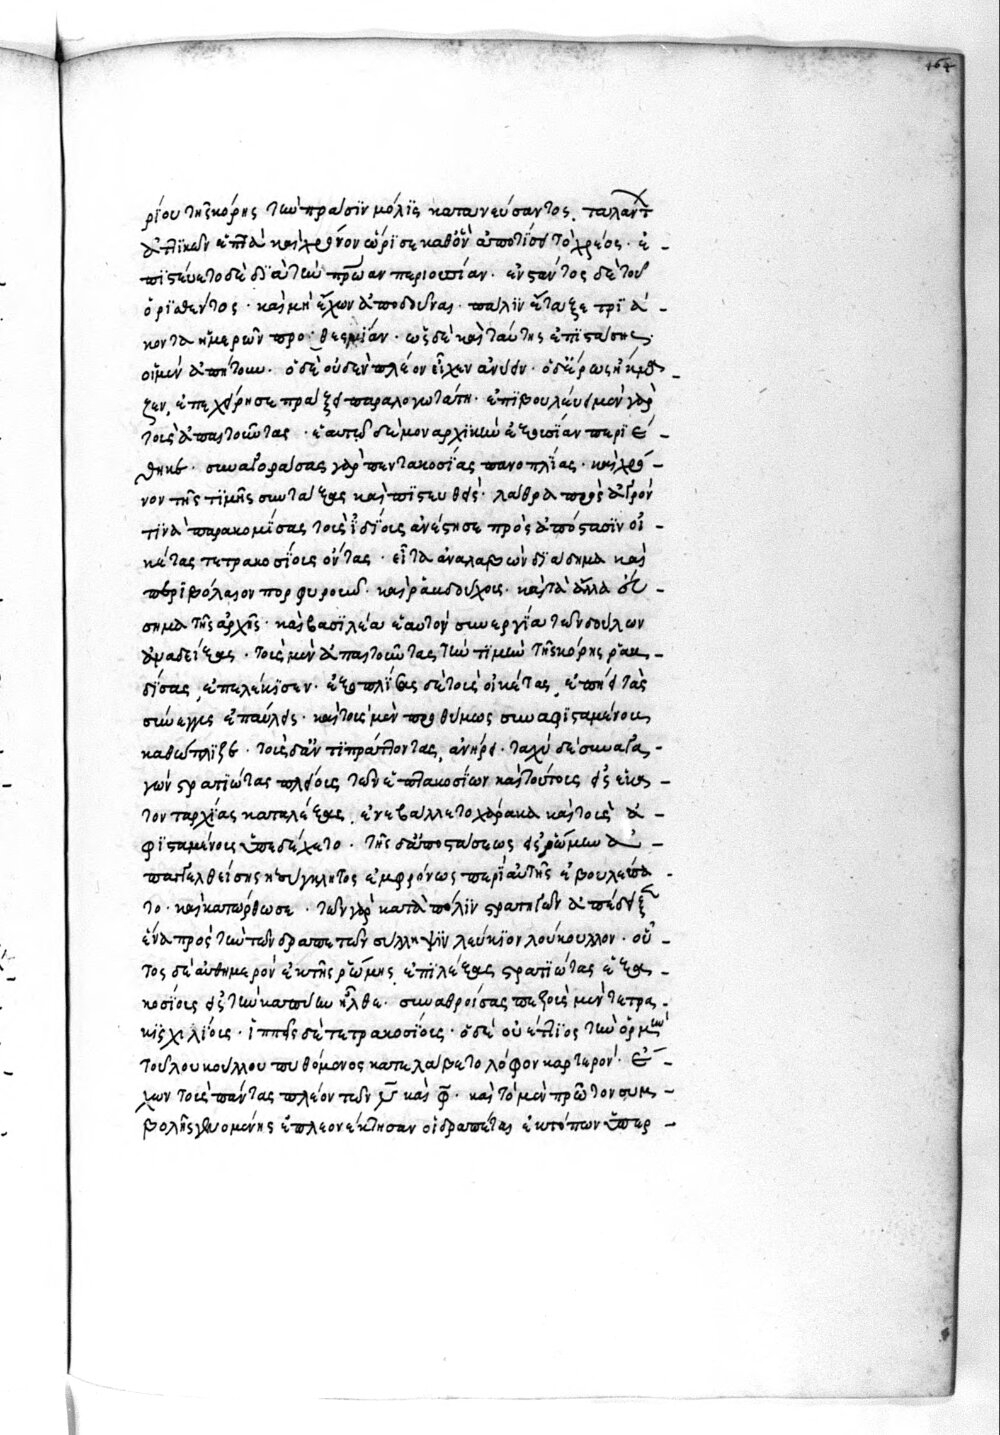 464
ρίου τῆς κόρης τὴν πρᾶσϊν μόλϊς κατανεύσαντος, ταλάντ
ἀττϊκῶν ἑπτὰ καὶ χρόνον ὥρϊσε καθ' ὃν ἀποτίσει τὸ χρέος· ἐ
πϊστεύετο δὲ δϊὰ τὴν πρώαν περιουσίαν. ἐνστάντος δὲ τοῦ
ὁρϊσθέντος· καὶ μὴ ἔχων ἀποδοῦναι· πάλϊν ἔταξε τρϊά
κοντα ἡμερῶν προθεσμίαν· ὡς δὲ καὶ ταύτης ἐπϊστάσης
οἱ μὲν ἀπῄτουν· ὁ δὲ οὐδὲν πλέον εἶχεν ἀνύειν· ὁ δ' ἔρως ἤκμα
ζεν, ἐπεχείρησε πράξει παραλογωτάτη· ἐπϊβουλεύει μὲν γὰρ
τοῖς ἀπαιτοῦσι· ἑαυτῷ δὲ μοναρχϊκὴν ἐξουσίαν περϊέ
θηκε· συναγοράσας γὰρ πεντακοσίας πανοπλίας· καὶ χρό
νον τῆς τϊμῆς συντάξας καὶ πϊστευθείς· λάθρα πρὸς ἀγρόν
τϊνα παρακομίσας τοὺς ἰδίους ἀνέστησε πρὸς ἀπόστασϊν οἰ
κέτας τετρακοσίους ὄντας· εἶτα ἀναλαβὼν δϊάδημα καὶ
περϊβόλαιον πορφυροῦν· καὶ ῥαβδούχους· καὶ τὰ ἄλλα σύσ
σημα τῆς ἀρχῆς· καὶ βασϊλέα ἑαυτὸν συνεργία τῶν δούλων
ἀναδείξας· τοὺς μὲν ἀπαιτοῦντας τὴν τϊμὴν τῆς κόρης ῥαβ
δίσας, ἐπελέκϊσεν· ἐξοπλίσας δὲ τοὺς οἰκέτας, ἐπῄει τὰς
σύνεγγυς ἐπαύλεις· καὶ τοὺς μὲν προθύμως συναφϊσταμένους
καθώπλϊζε· τοὺς δ' ἀντϊπράττοντας, ἀνῄρει· ταχὺ δὲ συναγα
γὼν στρατϊώτας πλείους τῶν ἑπτακοσίων καὶ τούτους εἰς ἑκα
τονταρχίας καταλέξας, ἐνεβάλλετο χάρακα καὶ τοὺς ἀ
φϊσταμένους ὑπεδέχετο· τῆς δ' ἀποστάσεως εἰς ῥώμην ἀ
παγγελθείσης ἡ σύγκλητος ἐμφρόνως περὶ αὐτῆς ἐβουλεύσα
το· καὶ κατώρθωσε· τῶν γὰρ κατὰ πόλϊν στρατηγῶν ἀπέδειξεν
ἕνα πρὸς τὴν τῶν δραπετῶν σύλληψϊν λεύκϊον λούκουλλον· οὗ
τος δὲ αὐθημερὸν ἐκ τῆς ῥώμης ἐπϊλέξας στρατϊώτας ἑξα
κοσίους εἰς τὴν καπύην ἦλθε· συναθροίσας πεζοὺς μὲν τετρα
κϊσχϊλίους· ἱππεῖς δὲ τετρακοσίους· ὁ δὲ οὐέττϊος τὴν ὁρμὴν
τοῦ λουκούλλου πυθόμενος κατελάβετο λόφον καρτερόν· ἔ
χων τοὺς πάντας πλέον τῶν ͵γ καὶ φ· καὶ τὸ μὲν πρῶτον συμ
βολῆς γενομένης ἐπλεονέκτησαν οἱ δραπέται ἐκ τόπων ὑπερ